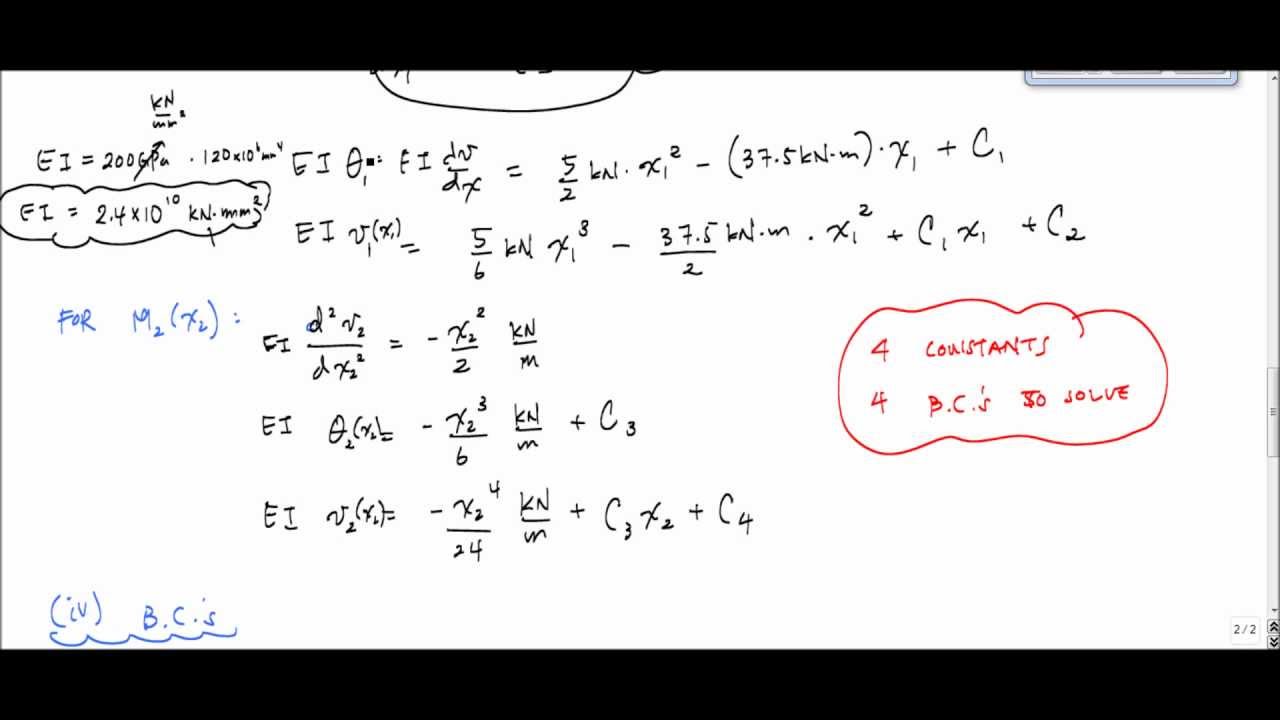 kN/mm²
EI = 200 GPa · 120×10⁶ mm⁴
EI = 2.4×10¹⁰ kN·mm²
EI θ₁ = EI dv/dx = 5/2 kN·x₁² − (37.5 kN·m)·x₁ + C₁
EI v₁(x₁) = 5/6 kN x₁³ − 37.5/2 kN·m · x₁² + C₁x₁ + C₂
FOR M₂(x₂) :
EI d²v₂/dx₂² = − x₂²/2 kN/m
EI θ₂(x₂) = − x₂³/6 kN/m + C₃
EI v₂(x₂) = − x₂⁴/24 kN/m + C₃x₂ + C₄
4 CONSTANTS
4 B.C.'s TO SOLVE
(iv) B.C.'s
2 / 2